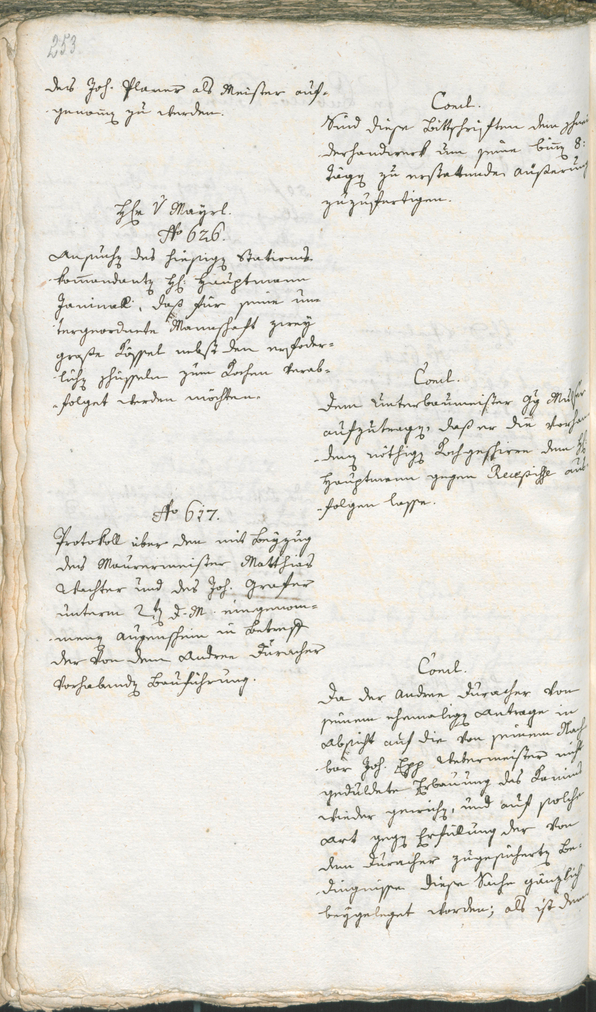 253
des Joh. Planer als Meister auf-
genom̄ zu werden.
Concl.
Sind diese Bittschriften dem
derhandwerk um seine binn 8:
Tägg zu erstattende Äußerung
zuzufertigen.
Hr v Mayrl.
No 626.
Ansuchen des hiesigen Stations-
kom̄andanten H. Hauptmann
Janinalli, daß für seine un-
tergeordnete Mannschaft zwey
große Kössel nebst den erforder-
lichen Schüsseln zum Kochen verab-
folget werden möchten.
Concl.
Dem Unterbaumeister Gg
aufzutragen, daß er die vorhan-
denen nöthigen Kochgeschirre dem H.
Hauptmann gegen Recepisse aus-
folgen lasse.
No 627.
Protokoll über den mit Beyzug
des Maurermeister Matthias
Wachter und des Joh. Grafer
unterm 2ten d. M. eingenom-
menen Augenschein in Betreff
der von dem Andree Duracher
vorhabenden Bauführung.
Concl.
Da der Andree Duracher von
seinem ehemaligen Antrage in
Absicht auf die von seinem Nach-
bar Joh. Epp Webermeister nicht
geduldete Erbauung des Kamins
wieder gewichen, und auf solche
Art gegen Erfüllung der von
dem Duracher zugesicherten Be-
dingnisse diese Sache gänzlich
beygeleget worden; als ist dem